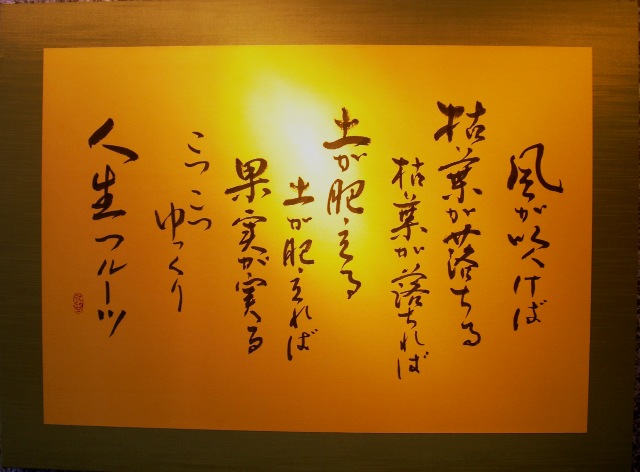 風が吹けば
枯葉が落ちる
枯葉が落ちれば
土が肥える
土が肥えれば
果実が実る
こつこつ
ゆっくり
人生フルーツ